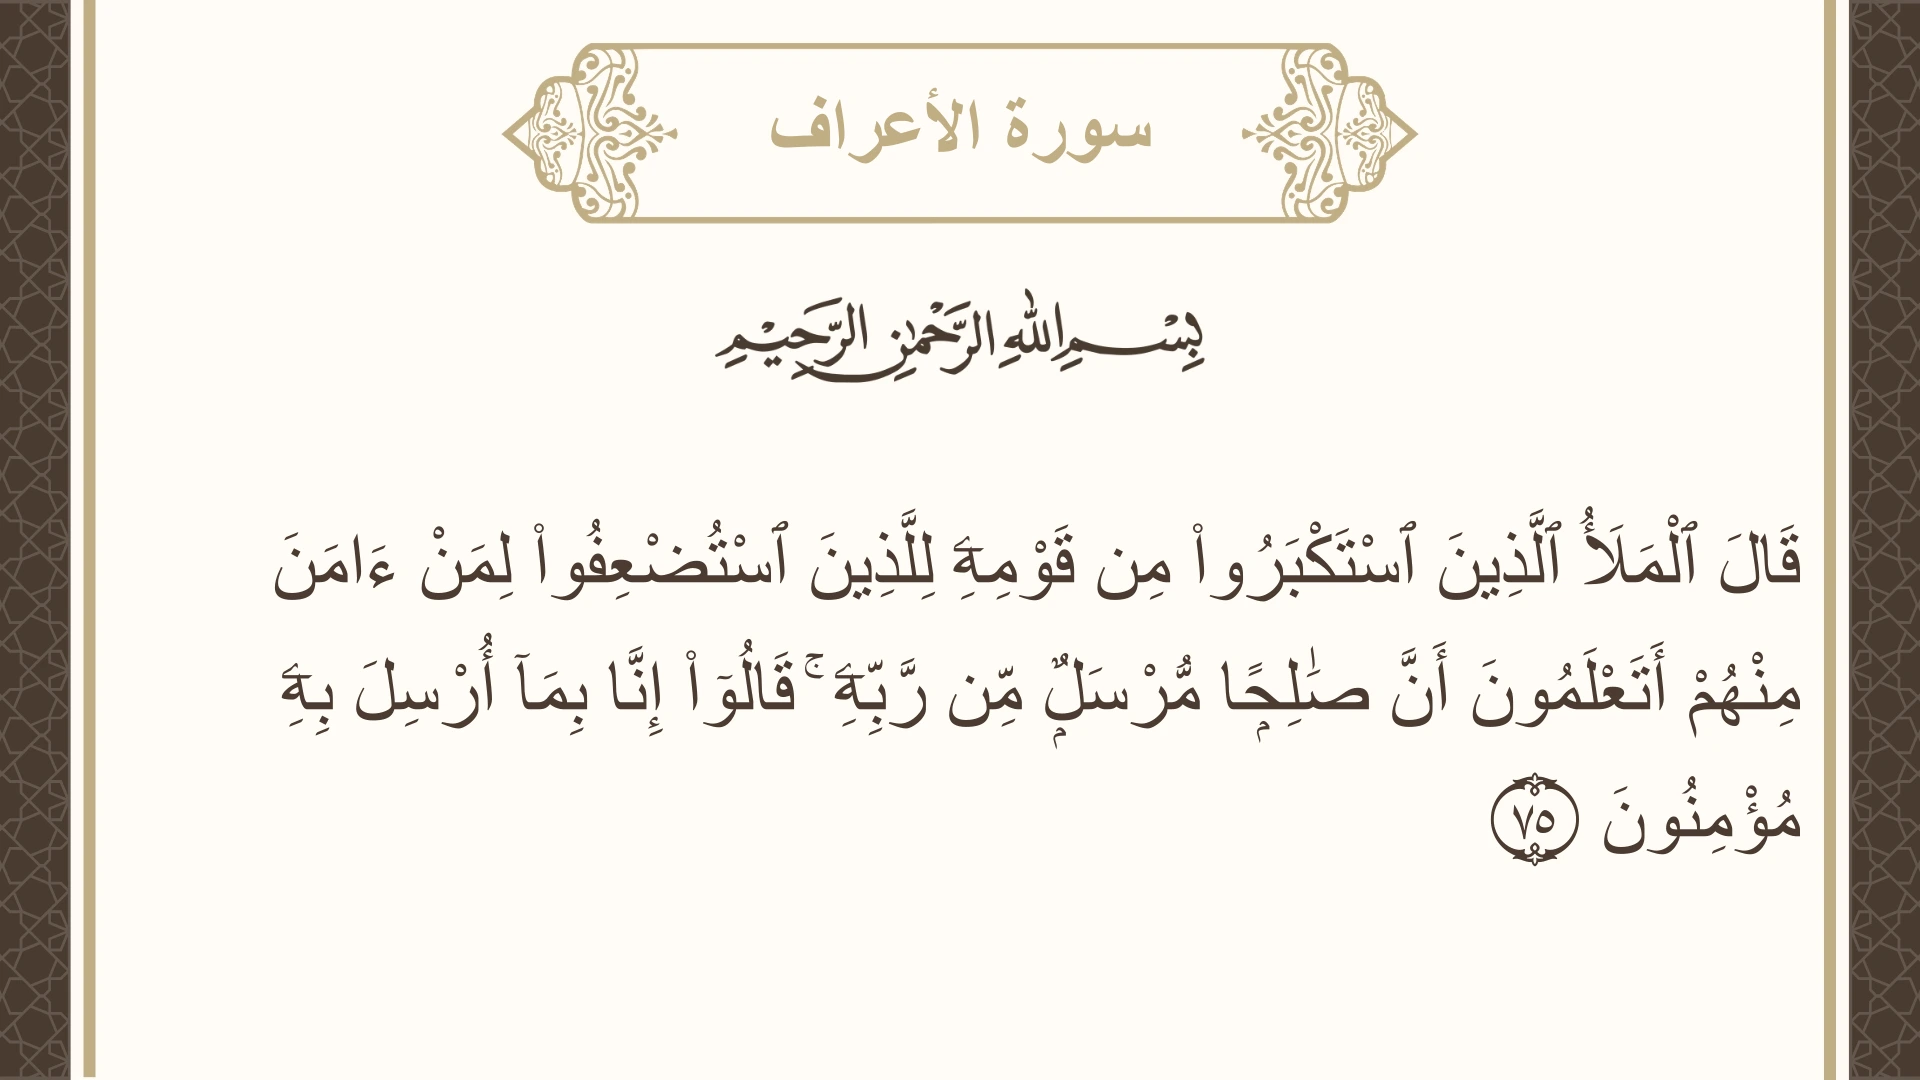 سورة الأعراف
بِسْمِ اللهِ الرَّحْمٰنِ الرَّحِيْمِ
قَالَ ٱلْمَلَأُ ٱلَّذِينَ ٱسْتَكْبَرُوا۟ مِن قَوْمِهِۦ لِلَّذِينَ ٱسْتُضْعِفُوا۟ لِمَنْ ءَامَنَ
مِنْهُمْ أَتَعْلَمُونَ أَنَّ صَـٰلِحًۭا مُّرْسَلٌۭ مِّن رَّبِّهِۦ ۚ قَالُوٓا۟ إِنَّا بِمَآ أُرْسِلَ بِهِۦ
مُؤْمِنُونَ ٧٥